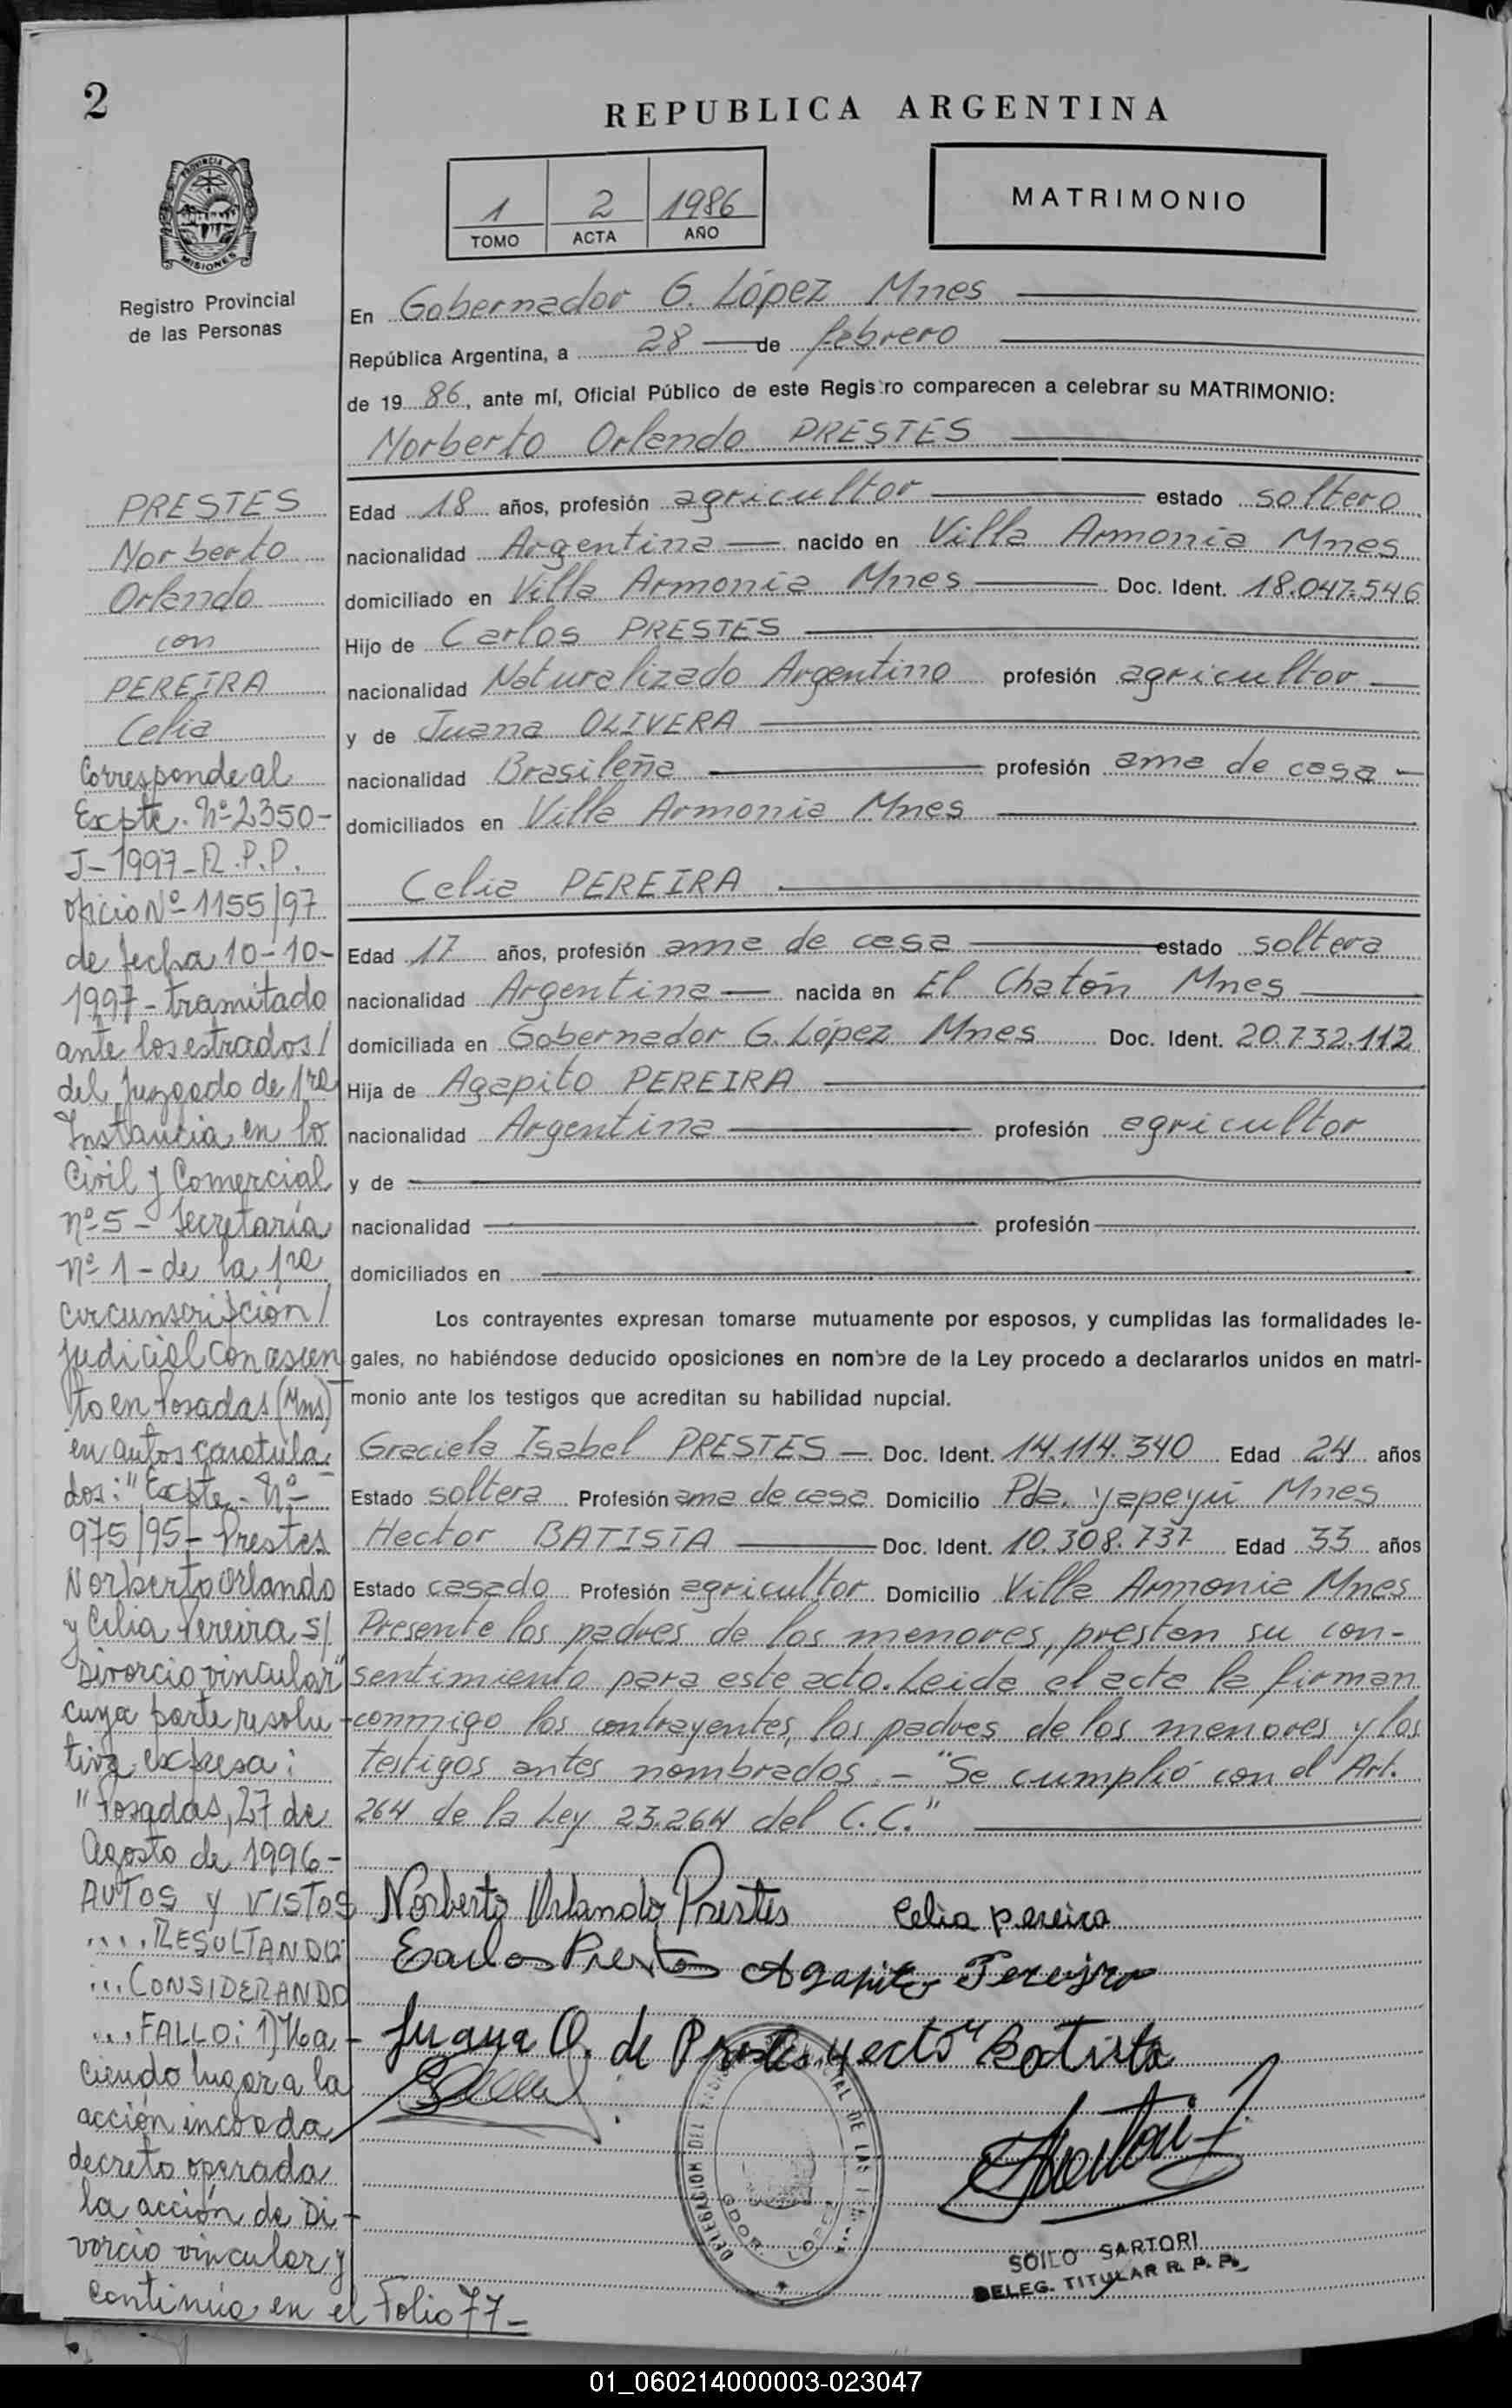 2
REPUBLICA ARGENTINA
1 2 1986
TOMO ACTA AÑO
MATRIMONIO
PROVINCIA
MISIONES
Registro Provincial
de las Personas
En Gobernador G. López Mnes
República Argentina, a 28 de febrero
de 1986, ante mí, Oficial Público de este Registro comparecen a celebrar su MATRIMONIO:
Norberto Orlando PRESTES
Edad 18 años, profesión agricultor estado soltero
nacionalidad Argentina nacido en Villa Armonia Mnes
domiciliado en Villa Armonia Mnes Doc. Ident. 18.047.546
Hijo de Carlos PRESTES
nacionalidad Naturalizado Argentino profesión agricultor
y de Juana OLIVERA
nacionalidad Brasileña profesión ama de casa
domiciliados en Villa Armonia Mnes
Celia PEREIRA
Edad 17 años, profesión ama de casa estado soltera
nacionalidad Argentina nacida en El Chatón Mnes
domiciliada en Gobernador G. López Mnes Doc. Ident. 20.732.112
Hija de Agapito PEREIRA
nacionalidad Argentina profesión agricultor
y de
nacionalidad profesión
domiciliados en
Los contrayentes expresan tomarse mutuamente por esposos, y cumplidas las formalidades le-
gales, no habiéndose deducido oposiciones en nombre de la Ley procedo a declararlos unidos en matri-
monio ante los testigos que acreditan su habilidad nupcial.
Graciela Isabel PRESTES Doc. Ident. 14.114.340 Edad 24 años
Estado soltera Profesión ama de casa Domicilio Pda. Yapeyú Mnes
Hector BATISTA Doc. Ident. 10.308.737 Edad 33 años
Estado casado Profesión agricultor Domicilio Villa Armonia Mnes
Presente los padres de los menores, prestan su con-
sentimiento para este acto. Leida el acta la firman
conmigo los contrayentes, los padres de los menores y los
testigos antes nombrados.- "Se cumplió con el Art.
264 de la Ley 23.264 del C.C."
Norberto Orlando Prestes Celia pereira
Carlos Prestes Agapito Pereira
Juana O. de Prestes yecto Batista
DELEGACION DEL
DE LAS
GDOR. LOPEZ
SOILO SARTORI
DELEG. TITULAR R. P. P.
PRESTES
Norberto
Orlando
con
PEREIRA
Celia
Corresponde al
Expte. Nº 2350-
J-1997-R.P.P.
oficio Nº 1155/97
de fecha 10-10-
1997-tramitado
ante los estrados/
del Juzgado de 1ra
Instancia en lo
Civil y Comercial
nº 5 - Secretaría
nº 1 - de la 1ra
circunscripción/
Judicial con asien
to en Posadas (Mns)
en autos caratula-
dos: "Expte. Nº
975/95- Prestes
Norberto Orlando
y Celia Pereira s/
Divorcio vincular"
cuya parte resolu-
tiva expresa:
"Posadas, 27 de
Agosto de 1996-
AUTOS Y VISTOS
....RESULTANDO
...CONSIDERANDO
...FALLO: 1) Ha-
ciendo lugar a la
acción incoada
decreto operada
la acción de Di-
vorcio vincular y
continúa en el Folio 77-
01_060214000003-023047